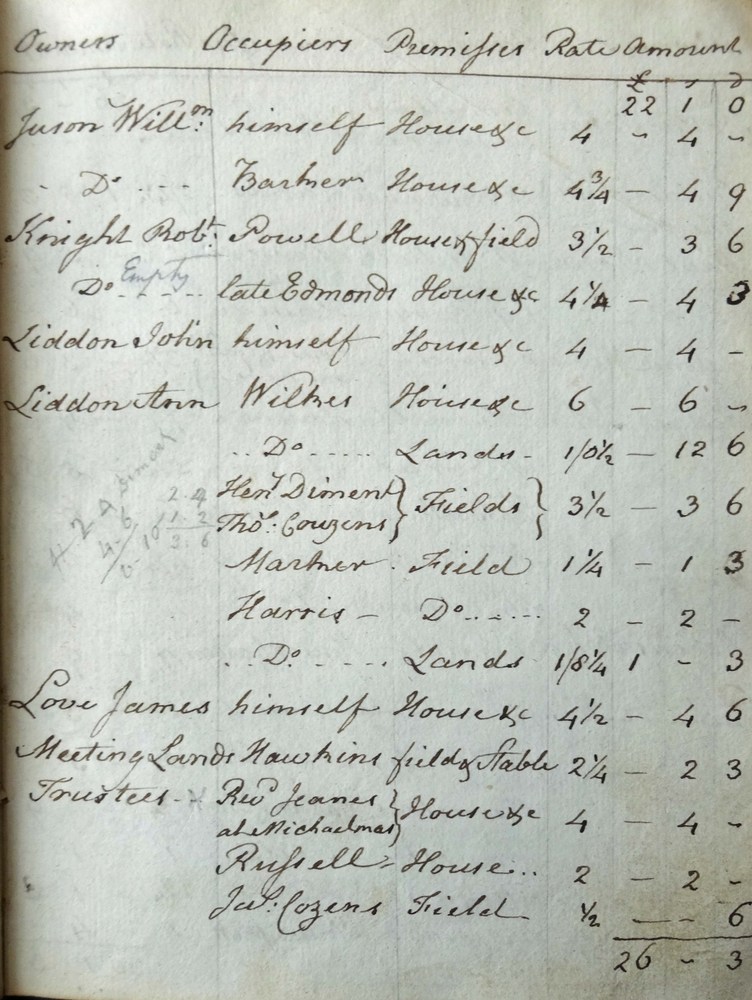 Owners Occupiers Premisses Rate Amount
£ s d
22 1 0
Juson Will:m himself House &c 4 - 4 -
Do .... Barker House &c 4¾ - 4 9
Knight Rob:t Powell House & field 3½ - 3 6
Empty
Do .... late Edmonds House &c 4¼ - 4 3
Liddon John himself House &c 4 - 4 -
Liddon Ann Wilkes House &c 6 - 6 -
.. Do ..... Lands - 1/0½ - 12 6
Hen:y Diment } Fields } 3½ - 3 6
Tho:s Couzens
2.4
1.2
3.6
Marker . Field 1¼ - 1 3
Harris - Do ..... 2 - 2 -
.. Do .... Lands 1/8¼ 1 - 3
Love James himself House &c 4½ - 4 6
Meeting Lands Hawkins field & Stable 2¼ - 2 3
Trustees - Rev:d Jeanes } House &c 4 - 4 -
at Michaelmas
Russell - House .. 2 - 2 -
Ja:s Cozens Field ½ - - 6
26 - 3